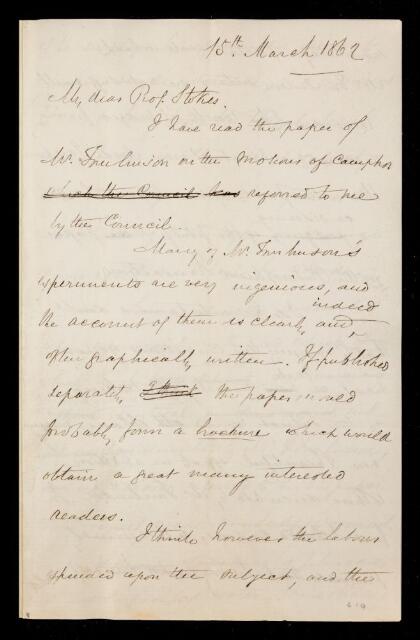 15th March 1862
My dear Prof. Stokes.
I have read the paper of
Mr. Tomlinson on the Motions of Camphor
which the Council has referred to me
by the Council.
Many of Mr. Tomlinson's
experiments are very ingenious, and
indeed
the account of them is clearly, and,
often graphically, written. If published
separately, I think the paper would
probably form a brochure which would
obtain a great many interested
readers.
I think however the labour
expended upon the subject, and the